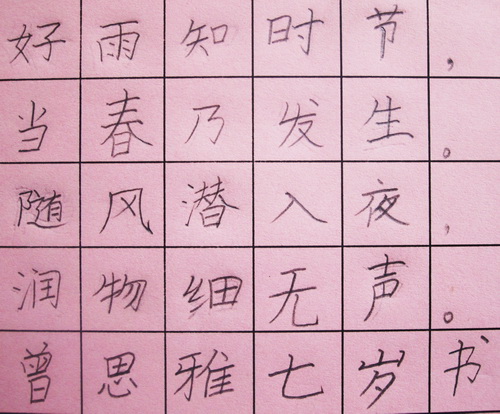 好雨知时节，
当春乃发生。
随风潜入夜，
润物细无声。
曾思雅七岁书